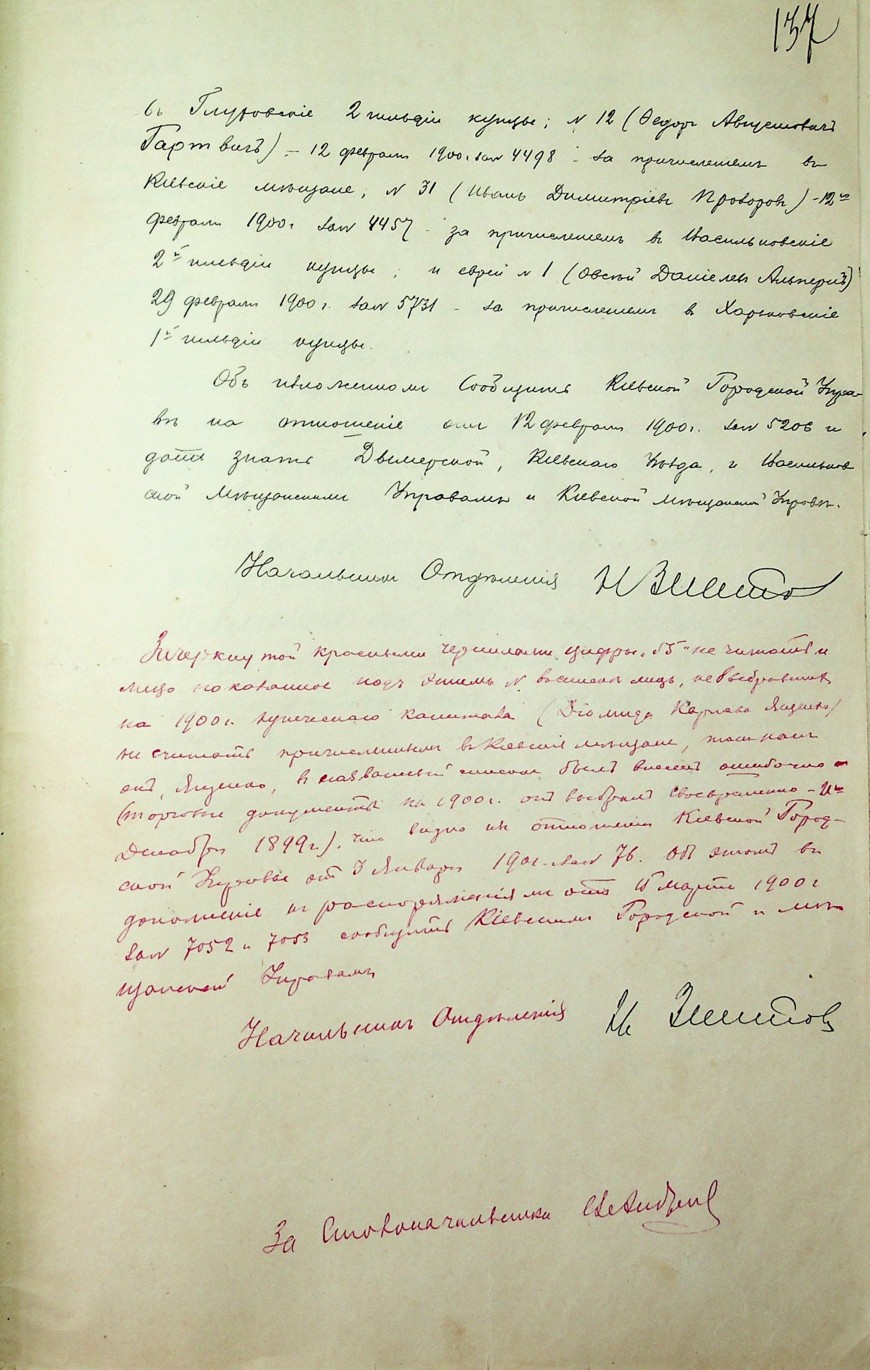 137
въ Глуховскіе 2 гильдіи купцы; № 12 (Федоръ Августовичъ
Гартвигъ) - 12 февраля 1900 г. за № 4498 - за причисленіемъ въ
Кіевскіе мѣщане; № 31 (Иванъ Димитріевъ Проворовъ) - 12го
февраля 1900 г. за № 4457 - за причисленіемъ въ Васильковскіе
2й гильдіи купцы; и еврей № 1 (Овсѣй Даніелевъ Альперинъ)
29 февраля 1900 г. за № 5731 - за причисленіемъ въ Харьковскіе
1й гильдіи купцы.
Объ изложенномъ сообщить Кіевской Городской Упра-
вѣ на отношеніе отъ 12 февраля 1900 г. за № 5206 и
дать знать Дымерской, Кіевскаго уѣзда, и Васильков
ской Мѣщанскимъ Управамъ и Кіевской мѣщанской Управѣ.
Начальникъ Отдѣленія
Зачеркнутой красными чернилами цифры „55" не читать и
лицо показанное подъ этимъ № въ лицъ, не выбравшихъ
на 1900 г. купеческаго капитала (Діомида Карпова Яценко)
не считать причисленнымъ въ Кіевскіе мѣщане, такъ какъ
онъ, Яценко, въ названный списокъ былъ внесенъ ошибочно
(торговые документы на 1900 г. онъ выбралъ своевременно -
Декабря 1899 г.), что видно изъ отношенія Кіевской Город-
ской Управы отъ 3 Января 1901 г. за № 76. Объ этомъ въ
дополненіе къ распоряженіямъ отъ 15 марта 1900 г
за № 7052 и 7053 сообщить Кіевскимъ Городской и мѣ-
щанской Управамъ
Начальникъ Отдѣленія
За Столоначальника